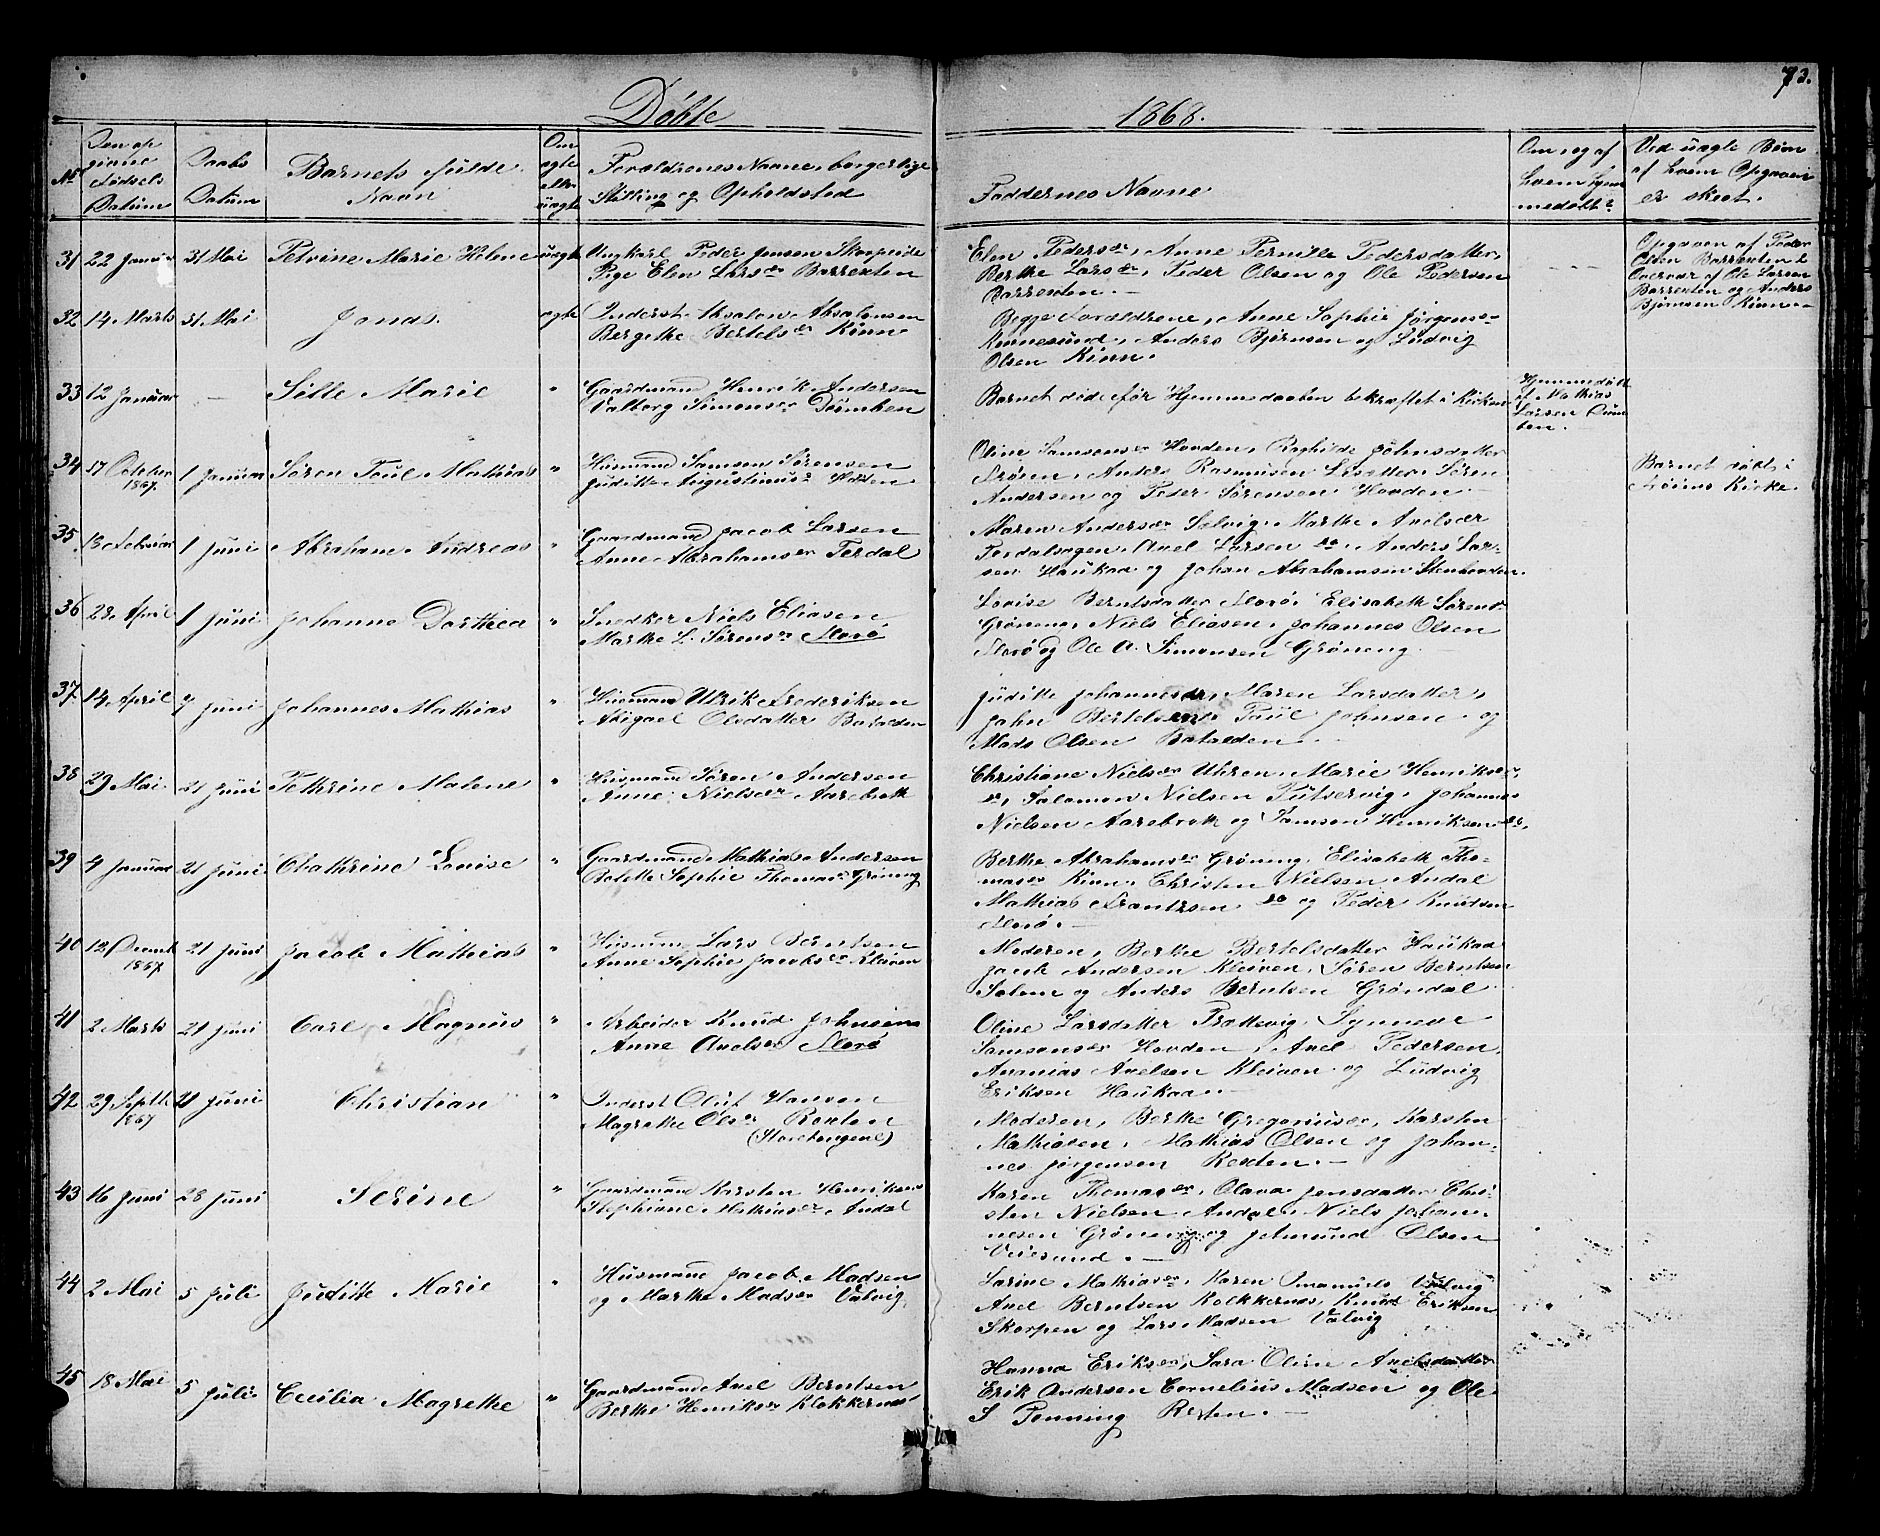 73.
Døbte 1868.
No
Den op
givne
Fødsels
Datum
Daabs
Datum
Barnets fulde
Navn
Om
ægte
eller
uægte
Forældrenes Navne, borgerlige
Stilling og Opholdsted
Faddernes Navne
Om og af
hvem hjem
medøbt?
Ved uægte Børn
af hvem Opgaven
er skeet.
31 22 Januar 31 Mai Petrine Marie Helene uægte Ungkarl Peder Jensen
Pige Elen Larsdr Barrexten
Elen Pedersdr, Anne Pernille Pedersdatter,
Berthe Larsdr, Peder Olsen og Ole Pedersen
Barrexten.
Opgaven af Peder
Olsen Barrexten i
Overvær af Ole Larsen
Barrexten og Anders
Bjørnsen Kinn.
32 14 Marts 31 Mai Jonas. ægte Inderst Absalon Absalonsen
Bergithe Bertelsdr Kinn
Begge Forældrene, Anne Sophie Jørgensdr
Anders Bjørnsen og Ludvig
Olsen Kinn.
33 12 Januar - Sille Marie " Gaardmand Henrik Andersen
Valborg Simonsdr
Barnet døde før Hjemmedaaben bekræftet i Kirken
Hjemmedøbt
af Mathias
Larsen
34 17 October
1867. 1 Januar Søren Poul Mathias " Husmand Samson Sørensen
Juditte Augustinusdr Hovden
Oline Samsonsdr Hovden, Raghilde Johnsdatter
Anders Rasmusen Søren
Andersen og Peder Sørensen Hovden.
Barnet døbt i
Kirke.
35. 13 Februar 1 Juni Abraham Andreas " Gaardmand Jacob Larsen
Anne Abrahamsdr Terdal
Maren Andersdr Solvig, Marthe Axelsdr
Axel Larsen do, Anders Lar-
sen Haukaa og Johan Abrahamsen Stenhovden.
36 28 April 1 Juni Johanne Dorthea " Snedker Niels Eliasen
Marthe L. Sørensdr Florø
Lovise Berntsdatter Florø, Elisabeth Sørensdr
Grønning, Niels Eliasen, Johannes Olsen
Florø og Ole A. Simonsen Grøning.
37. 14 April 7 Juni Johannes Mathias " Husmand Ulrik Frederiksen
Abigael Olsdatter Batalden
Judithe Johannesdr, Maren Larsdatter,
John Bertelsen, Paul Johnsen og
Mads Olsen Batalden.
38 29 Mai 21 Juni Pethrine Malene " Husmand Søren Andersen
Anne Nielsdr Aarebroth
Christiane Nielsdr Uhren, Marie Henriksdr
do, Salomon Nielsen Johannes
Nielsen Aarebrotte og Samson Henriksen do.
39 4 Januar 21 Juni Cathrine Lovise " Gaardmand Mathias Andersen
Bolette Sophie Thomasdr Grøning
Berthe Abrahamsdr Grøning, Elisabeth Tho-
masdr Kinn, Christen Nielsen Andal
Mathias Frantzsen do og Peder Knudsen
Florø.
40 12 Decemb
1867 21 Juni Jacob Mathias " Husmand Lars Berntsen
Anne Sophie Jacobsdr Kleiven
Moderen, Berthe Bertelsdatter Haukaa
Jacob Andersen Kleiven, Søren Berntsen
Solem og Anders Berntsen Grøndal
41 2 Marts 21 Juni Carl Magnus " Arbeider Knud Johnsen
Anne Axelsdr Florø
Oline Larsdatter Synneve
Samsonsdr Hovden, Axel Pedersen,
Ananias Axelsen Kleiven og Ludvig
Eriksen Haukaa.
42 29 Septb
1867 21 Juni Christian " Inderst Oluf Hansen
Magrethe Olsdr Rexten
(Storetangene)
Moderen, Berthe Gregoriusdr, Karsten
Mathiasen, Mathias Olsen og Johan-
nes Jørgensen Rexten.
43 16 Juni 28 Juni Serine " Gaardmand Karsten Henriksen
Stephiane Mathiasdr Andal
Karen Thomasdr, Olava Jensdatter Chri-
sten Nielsen Andal, Niels Johan-
nesen Grøning og Jetmund Olsen
Veiesund.
44 2 Mai 5 Juli Juditte Marie " Husmand Jacob Madsen
og Marthe Madsdr Valvig
Larine Mathiasdr, Karen Emanuels Valvig
Axel Berntsen Kolkkernes, Knud Eriksen
Skorpen og Lars Madsen Valvig
45 18 Mai 5 Juli Cecilia Magrethe " Gaardmand Axel Berntsen
Berthe Henriksdr Klokkernes
Hanna Eriksdr, Sara Oline Axelsdatter
Erik Andersen Cornelius Madsen og Ole
S Penning Rexten.